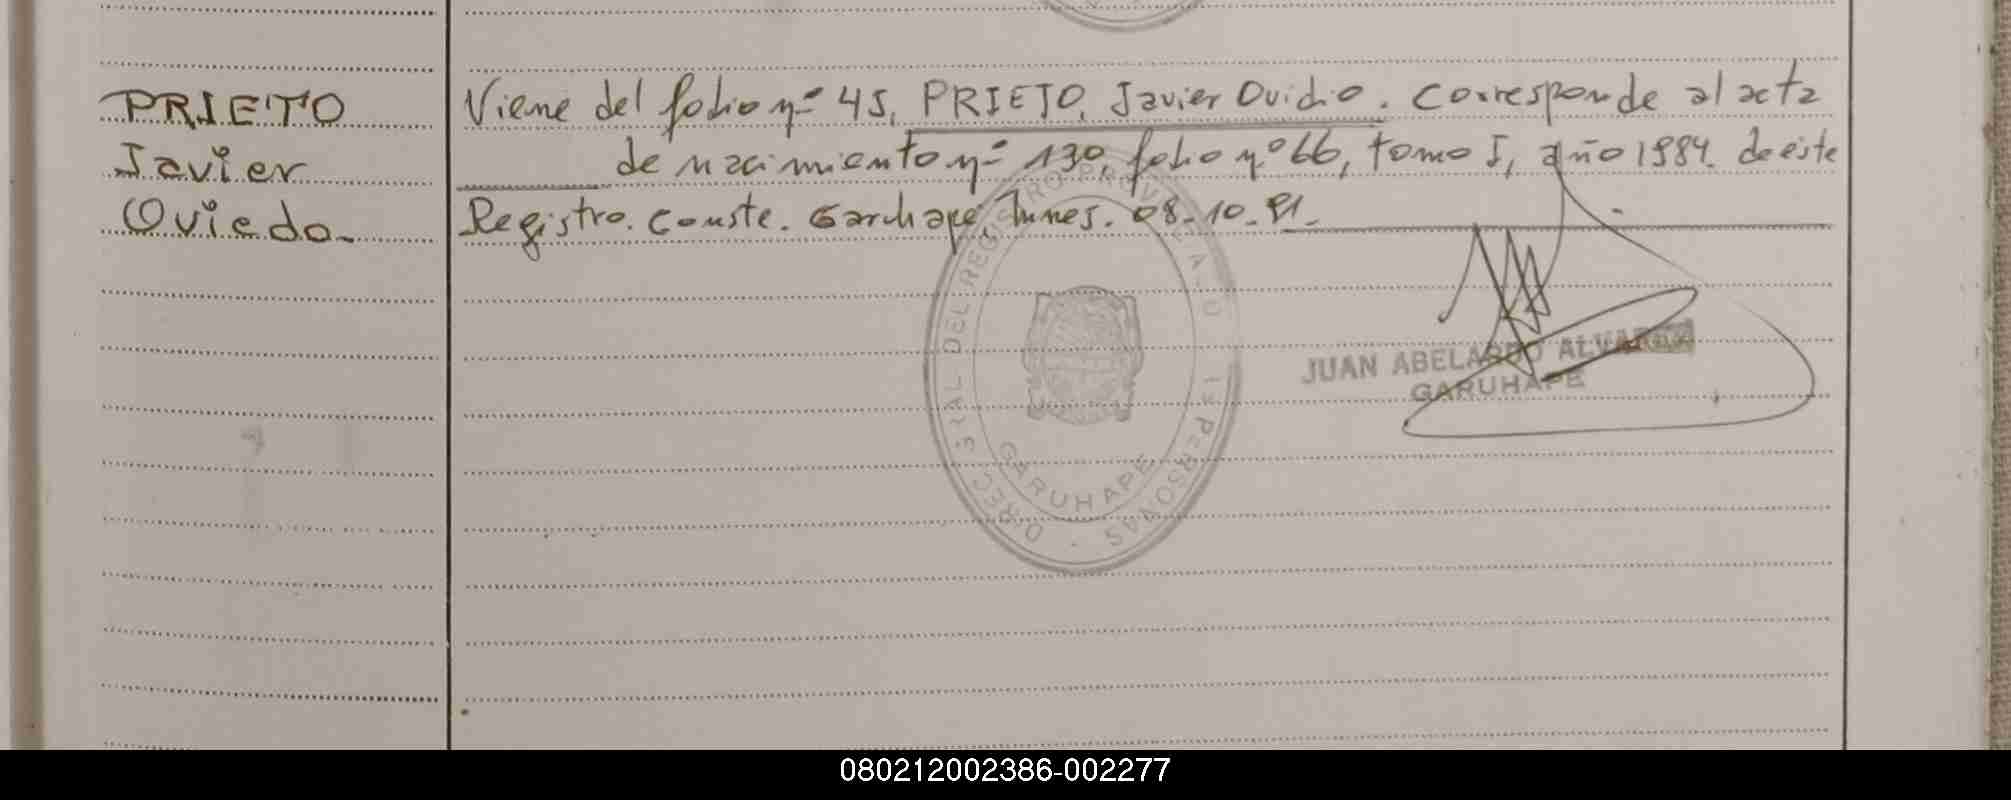 PRIETO
Javier
Oviedo.-
Viene del folio nº 45, PRIETO, Javier Ovidio. Corresponde al acta
de nacimiento nº 130, folio nº 66, tomo I, año 1984. de este
Registro. Conste. Garuhapé, Mnes. 08-10-91.-
DIREC. GRAL DEL REGISTRO PROVINCIAL D PERSONAS
GARUHAPE
JUAN ABELARDO ALVAREZ
GARUHAPE
080212002386-002277